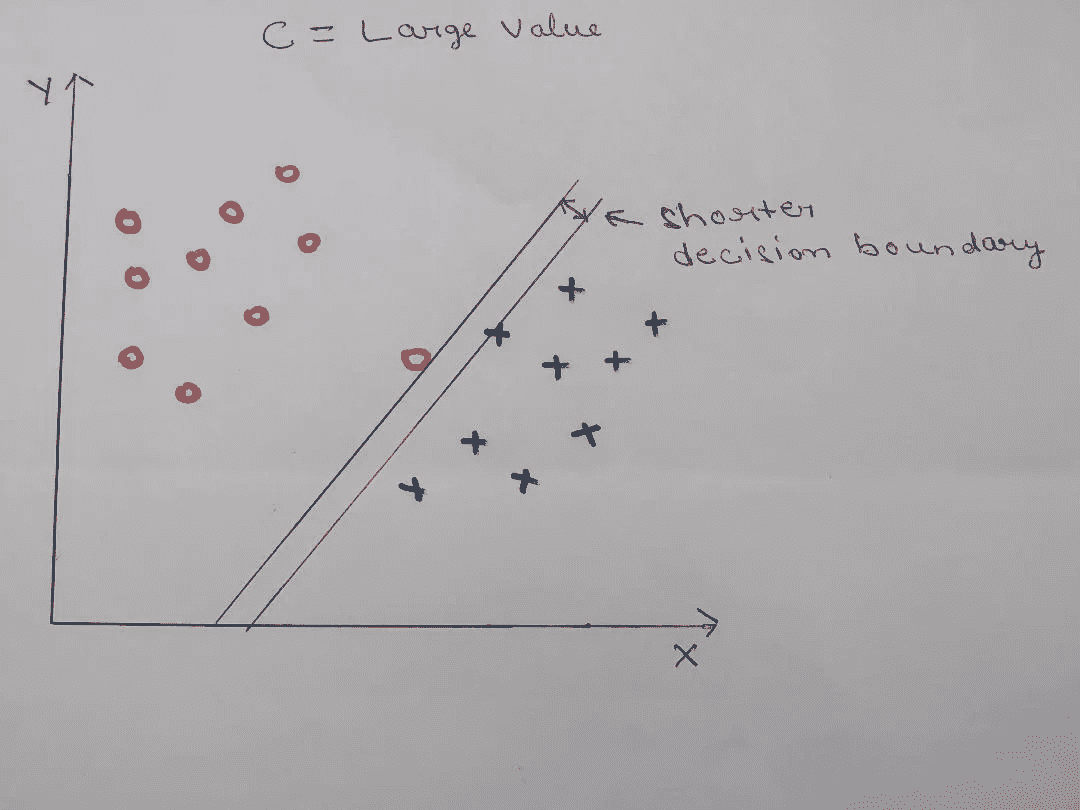 C = Large Value
Y
← Shorter
decision boundary
X